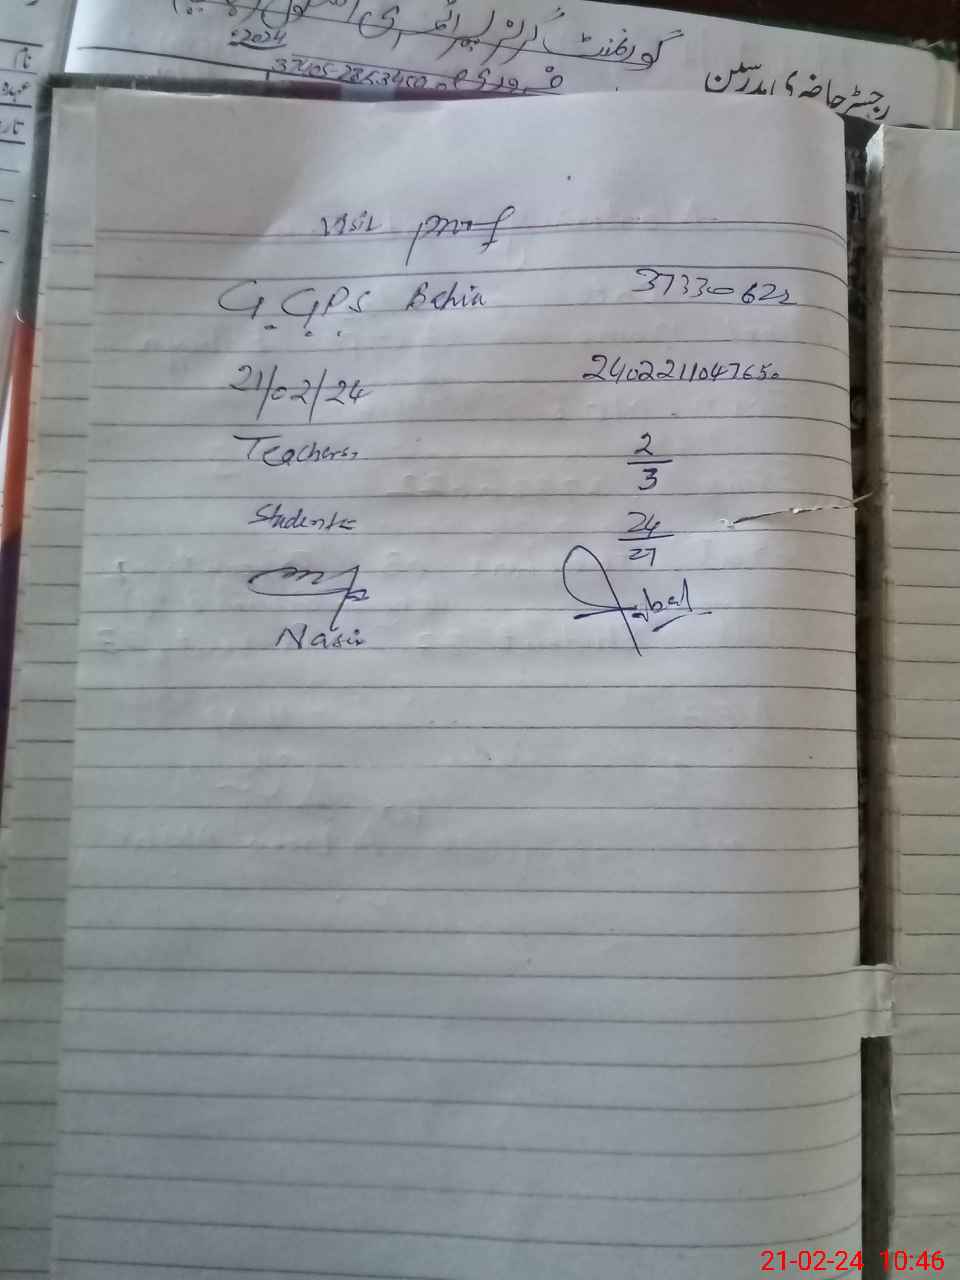 گورنمنٹ گرلز پرائمری سکول
2024
فروری
رجسٹر حاضری مدرسین
Visit proof
G.GPS Behia 37330622
21/02/24 2402211047650
Teachers, 2/3
Students 24/27
Nasir
21-02-24 10:46